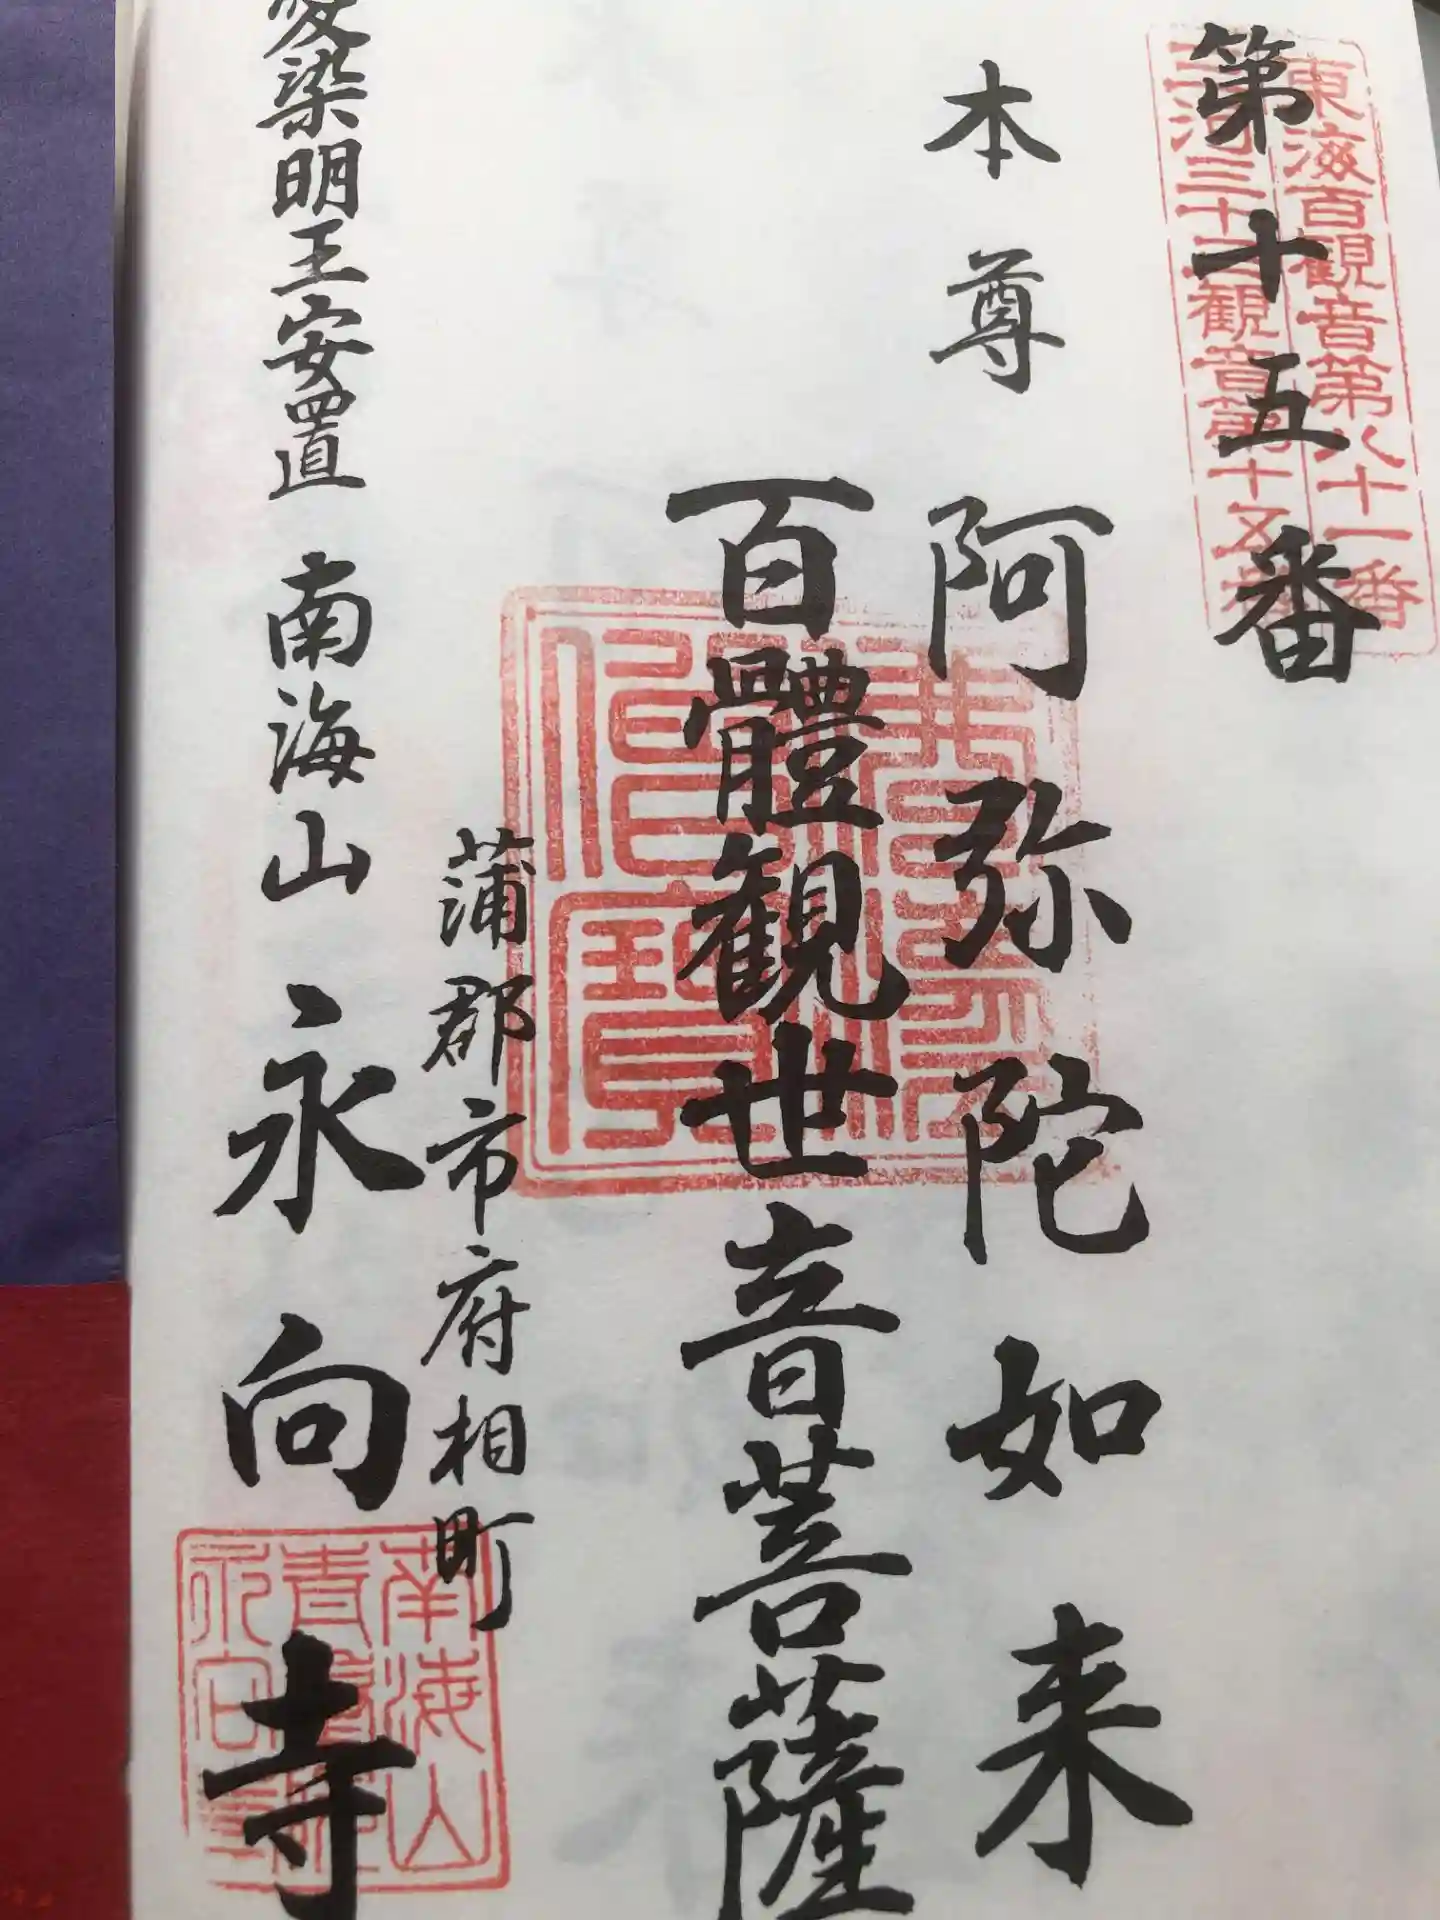 東海百観音第八十一番
三河三十三観音第十五番
第十五番
本尊 阿弥陀如来
百體観世音菩薩
蒲郡市府相町
愛染明王安置 南海山 永向寺
南海山